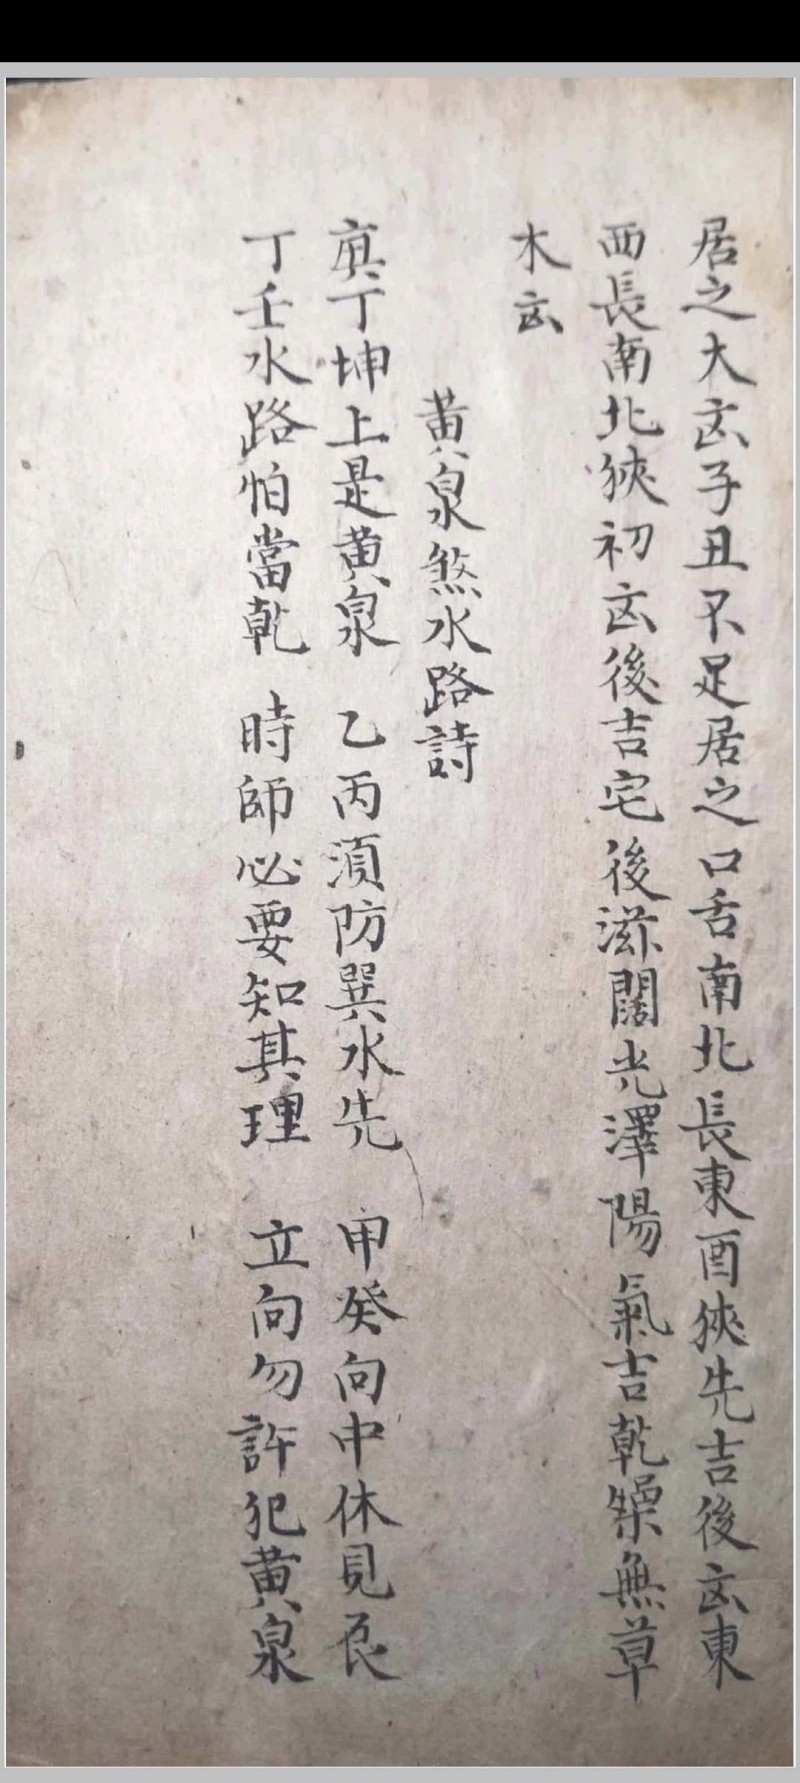 居之大㐫子丑不足居之口舌南北長東酉狹先吉後㐫東
西長南北狹初㐫後吉宅後滋闊光澤陽氣吉乾燥無草
木㐫
黃泉煞水路詩
庚丁坤上是黃泉 乙丙湏防巽水先 甲癸向中休見艮
丁壬水路怕當乾 時師必要知其理 立向勿許犯黃泉